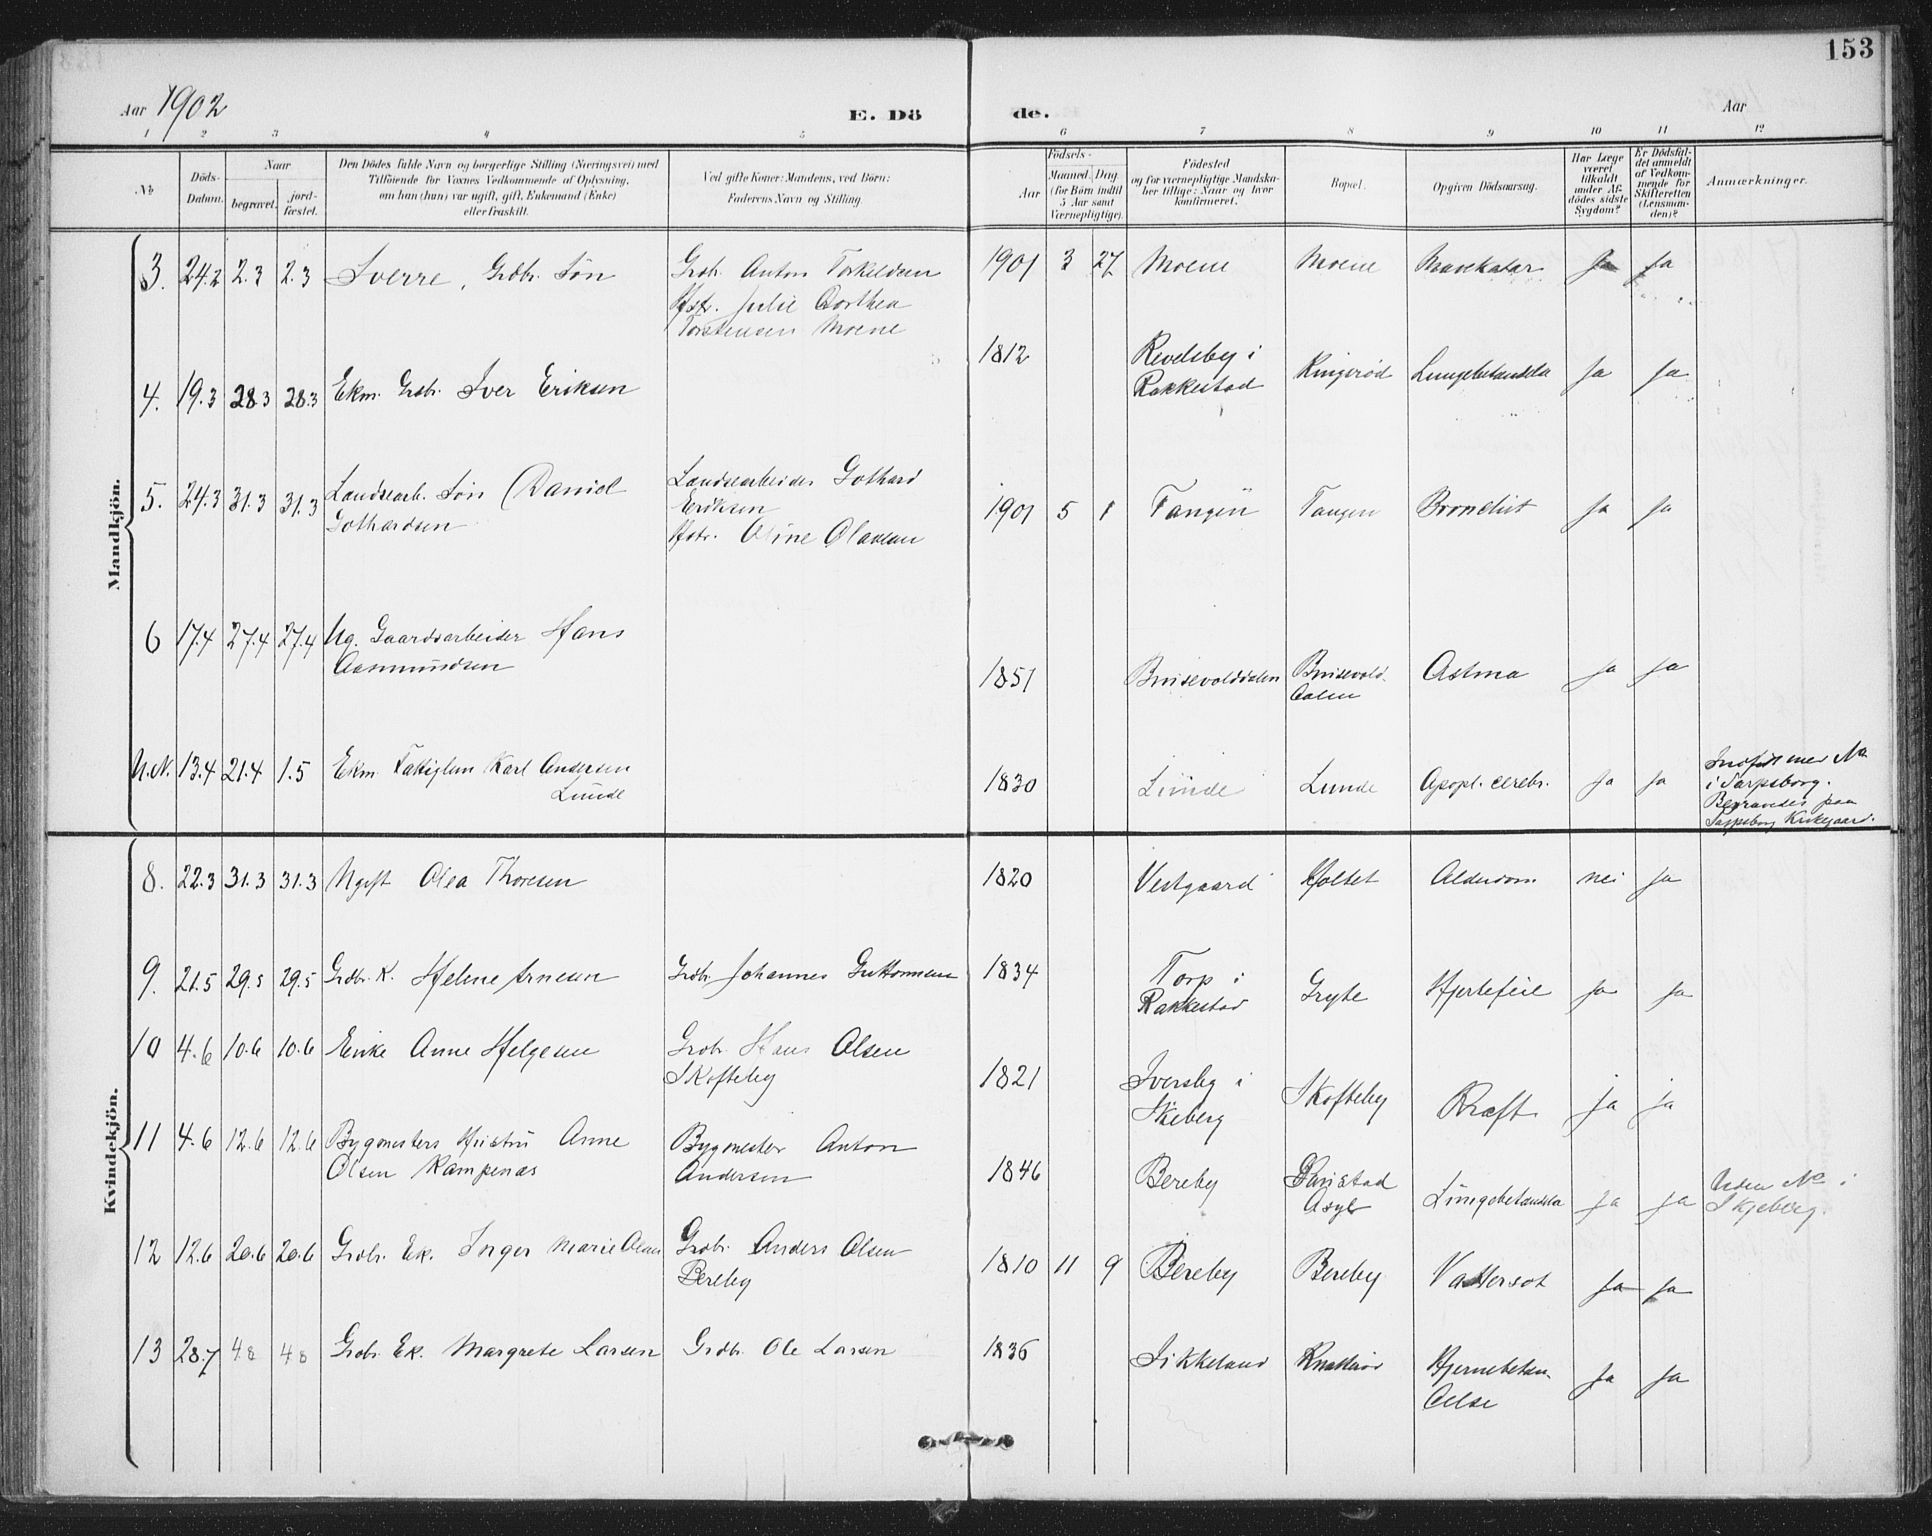 153
Aar 1902
E. Dö
de.
Aar
1 2 3 4 5 6 7 8 9 10 11 12
No
Döds-
Datum.
Naar
begravet.
jord-
fæstet.
Den Dödes fulde Navn og borgerlige Stilling (Næringsvei) med
Tilföiende for Voxnes Vedkommende af Oplysning,
om han (hun) var ugift, gift, Enkemand (Enke)
eller fraskilt.
Ved gifte Koner: Mandens, ved Börn:
Faderens Navn og Stilling.
Födsels-
Aar
Maaned. Dag
(for Börn indtil
5 Aar samt
Værnepligtige).
Födested
og for værnepligtige Mandska-
ber tillige: Naar og hvor
konfirmeret.
Bopæl.
Opgiven Dödsaarsag.
Har Læge
været
tilkaldt
under Af-
dödes sidste
Sygdom?
Er Dödsfal-
det anmeldt
af Vedkom-
mende for
Skifteretten
(Lensman-
den)?
Anmærkninger.
Mandkjön.
3. 24.2 2.3 2.3 Sverre, Grdbr. Søn
Grdb. Anton Torkeldsen
Hstr. Julie Dorthea
Torstensen Moene
1901 3 27 Moene Moene Mavekatar Ja Ja
4. 19.3 28.3 28.3 Ekm. Grdbr. Iver Eriksen
1812 Revelsby i
Rakkestad
Ringerød Lungebetændelse Ja Ja
5. 24.3 31.3 31.3 Landsarb. Søn Daniel
Gothardsen
Landsarbeider Gothard
Eriksen
Hstr. Oline Olausen
1901 5 1 Tangen Tangen Bronchit Ja Ja
6 17.4 27.4 27.4 Ug. Gaardsarbeider Hans
Aasmundsen
1851 Brusevolddalen Brusevold-
dalen
Astma Ja Ja
U.N. 13.4 21.4 1.5 Ekm. Karl Andersen
Lunde
1830 Lunde Lunde Apopl. cerebr. Ja Ja
Indført med No
i Sarpsborg.
Begravedes paa
Sarpsborg Kirkegaard.
Kvindekjön.
8. 22.3 31.3 31.3 Ugift Olea Thoresen
1820 Vestgaard Holtet Alderdom nei Ja
9. 21.5 29.5 29.5 Grdbr. K. Helene Arnesen
Grdbr Johannes Guttormsen
1834 Torp i
Rakkestad
Gryte Hjertefeil Ja Ja
10 4.6 10.6 10.6 Enke Anne Helgesen
Grdbr. Hans Olsen
Skofteby
1821 Iversby i
Skeberg
Skofteby Kræft ja ja
11 4.6 12.6 12.6 Bygmesters Hustru Anne
Olsen Kampenæs
Bygmester Anton
Andersen
1846 Bereby
Asyl
Lungebetændelse ja ja
Uden No i
Skjeberg.
12 12.6 20.6 20.6 Grdbr. Ek. Inger Marie Olsen
Grdbr. Anders Olsen
Bereby
1810 11 9 Bereby Bereby Vattersot Ja Ja
13 28.7 4.8 4.8 Grdbr. Ek. Margrete Larsen Grdbr. Ole Larsen
1836 Sikkeland Knatterød Hjernebetæn-
delse
Ja Ja